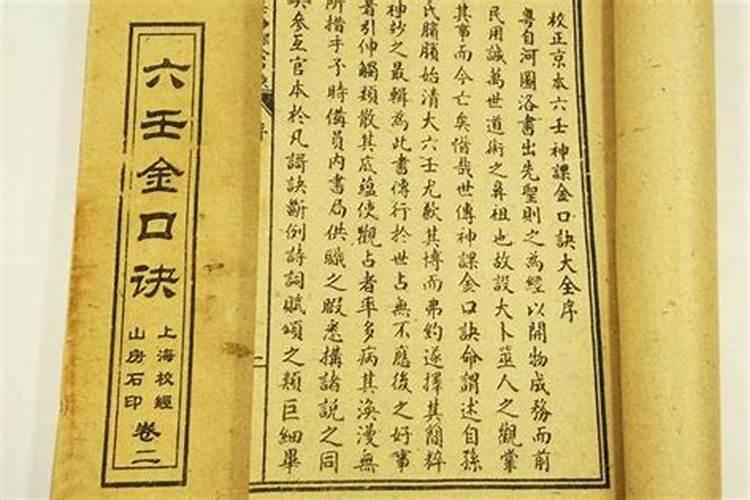 六壬金口诀
上海校經
山房石印
卷二
校正京本六壬神課金口訣大全序
粵自河圖洛書出先聖則之為經以開物成務而前
民用誠萬世道術之鼻祖也故設大卜筮人之觀掌
其事而今亡矣惜哉世傳神課金口訣命謂述自孫
氏臏始清大六壬尤歉其博而弗約遂擇其簡粹
神妙之最輯為此書傳行於世占無不應後之好事
者引伸觸類散其底蘊使觀占者率多病其渙漫無
所措手予時備員内書局供職之暇悉搆諸說之同
參互官本於凡謌訣斷例詩詞賦頌之類巨細畢